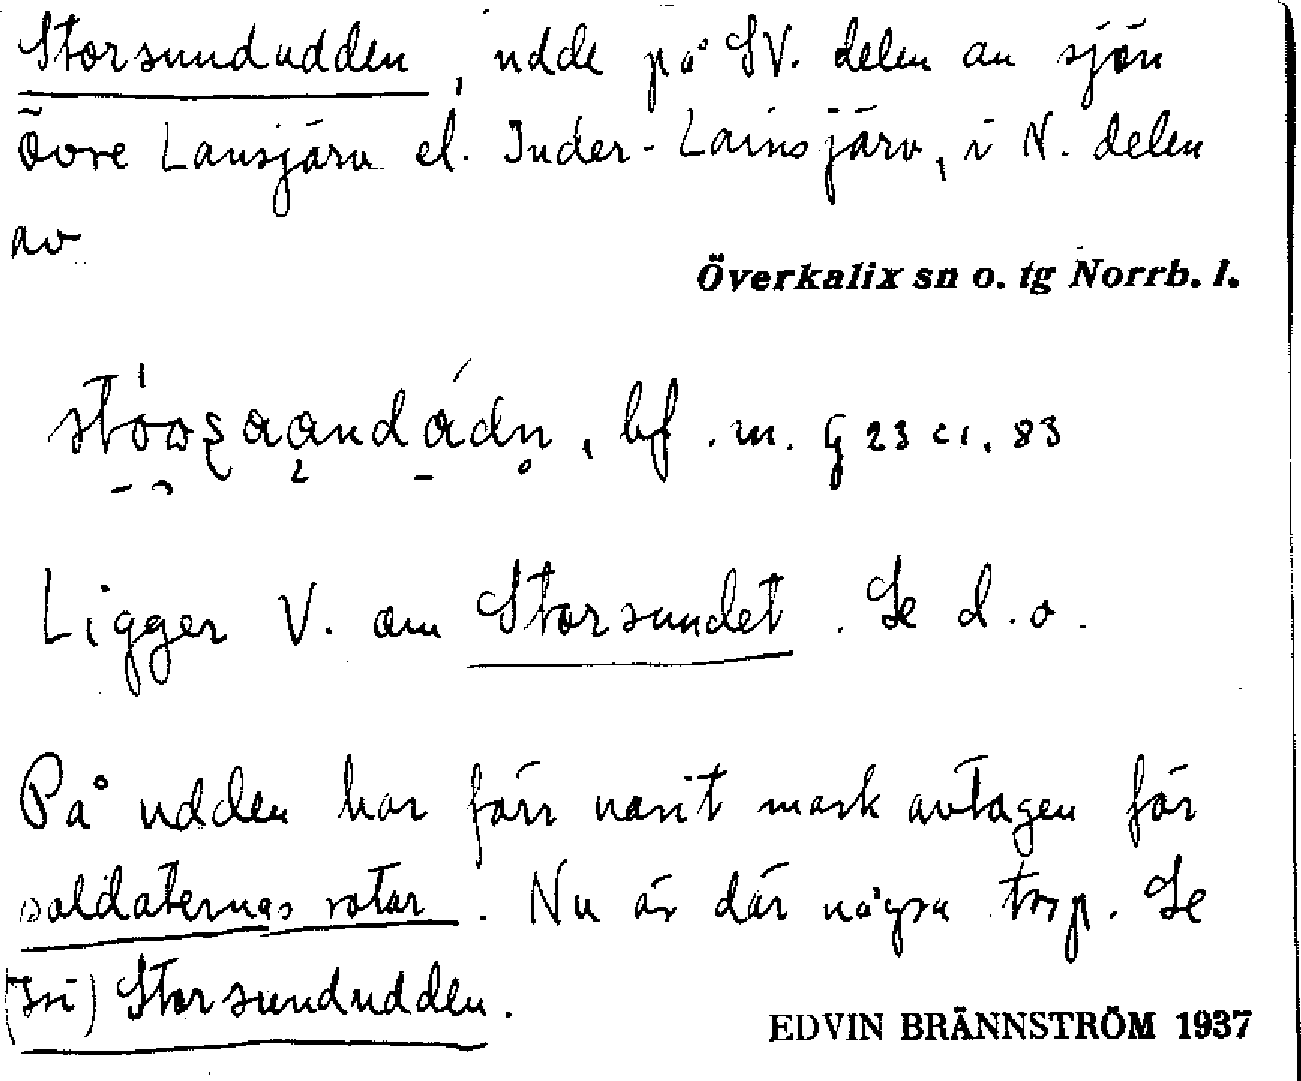 Storsundudden, udde på SV. delen av sjön
Övre Lansjärv el. Inder-Lainsjärv, i N. delen
av
Överkalix sn o. tg Norrb. l.
, bf. m. G 23 c1. 83
Ligger V. om Storsundet. Se d.o.
På udden har förr varit mark avtagen för
soldaternas rotar. Nu är där några torp. Se
(Isi) Storsundudden.
EDVIN BRÄNNSTRÖM 1937